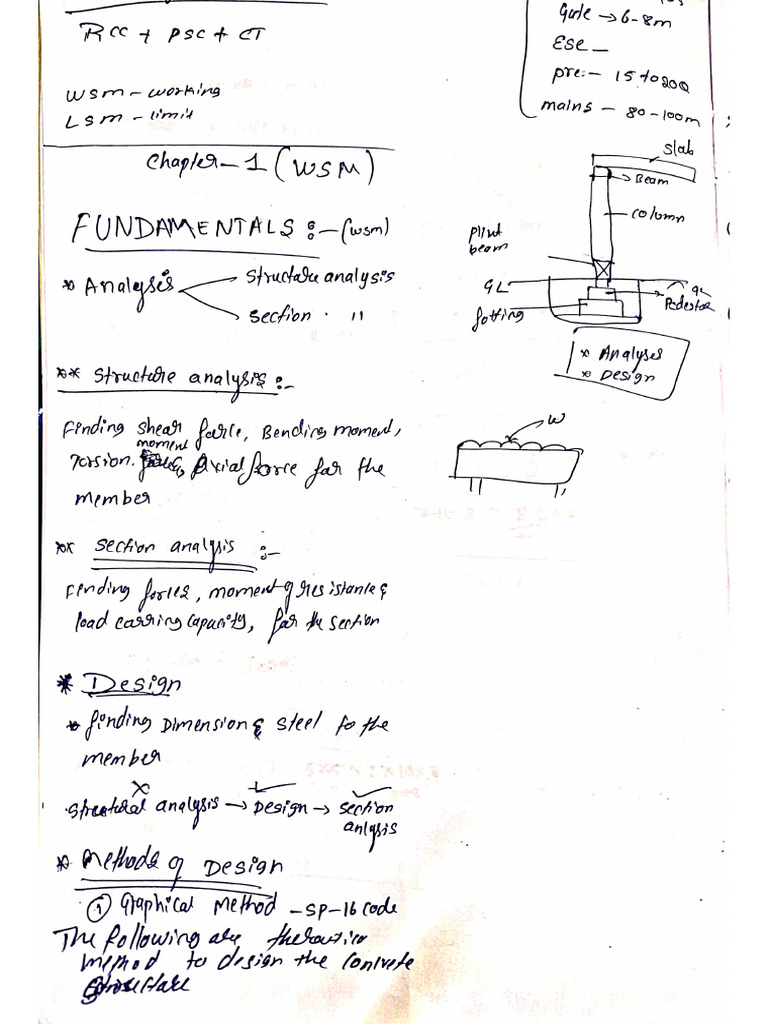 RCC + PSC + CT
Gate → 6-8m
ESE -
pre:- 15 to 20Q
mains - 80-100m
WSM - working
LSM - limit
Chapter - 1 (WSM)
FUNDAMENTALS :- (wsm)
* Analyses
Structure analysis
Section " 
Slab
Beam
column
plint
beam
GL
GL
Pedestal
fotting
* Analyses
* Design
** Structure analysis :-
Finding shear force, Bending moment,
Torsion moment, Axial force for the
member
W
** Section analysis :-
Finding forces, moment of resistance &
load carring capacity, for the section
* Design
* finding Dimension & steel fo the
member
Structural analysis → Design → section
anlysis
* Methods of Design
① Graphical Method - SP-16 code
The following are
method to design the concrete